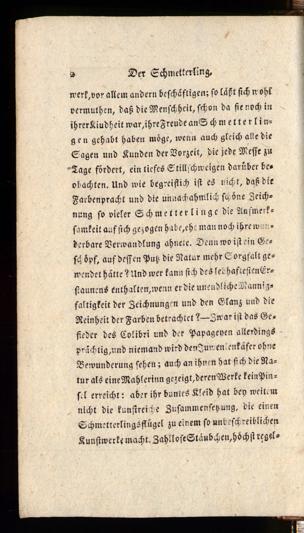 2 Der Schmetterling.
werk, vor allem andern beschäftigen; so läßt sich wohl
vermuthen, daß die Menschheit, schon da sie noch in
ihrer Kindheit war, ihre Freude an Schmetterlin-
gen gehabt haben möge, wenn auch gleich alle die
Sagen und Kunden der Vorzeit, die jede Messe zu
Tage fördert, ein tiefes Stillschweigen darüber be-
obachten. Und wie begreiflich ist es nicht, daß die
Farbenpracht und die unnachahmlich schöne Zeich-
nung so vieler Schmetterlinge die Aufmerk-
samkeit auf sich gezogen habe, ehe man noch ihre wun-
derbare Verwandlung ahnete. Denn wo ist ein Ge-
schöpf, auf dessen Putz die Natur mehr Sorgfalt ge-
wendet hätte? Und wer kann sich des lebhaftesten Er-
staunens enthalten, wenn er die unendliche Mannig-
faltigkeit der Zeichnungen und den Glanz und die
Reinheit der Farben betrachtet? — Zwar ist das Ge-
fieder des Colibri und der Papageyen allerdings
prächtig, und niemand wird den Juwelenkäfer ohne
Bewunderung sehen; auch an ihnen hat sich die Na-
tur als eine Mahlerinn gezeigt, deren Werke kein Pin-
sel erreicht: aber ihr buntes Kleid hat bey weitem
nicht die kunstreiche Zusammensetzung, die einen
Schmetterlingsflügel zu einem so unbeschreiblichen
Kunstwerke macht. Zahllose Stäubchen, höchst regel-